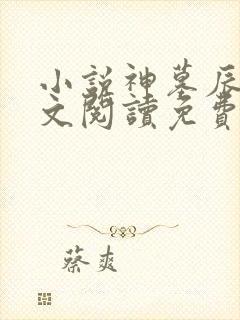 小说神墓辰
文閱讀免費
蔡爽